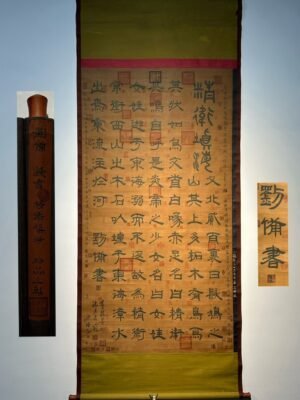 精衛填海
又北貳百里曰發鳩之
山其上多柘木有鳥焉
其狀如烏文首白喙赤足名曰精衛
其鳴自是炎帝之少女名曰女娃
女娃遊于東海溺而不返故為精衛
常銜西山之木石以堙于東海漳水
出焉東流注於河 劉備書
劉備書
劉備